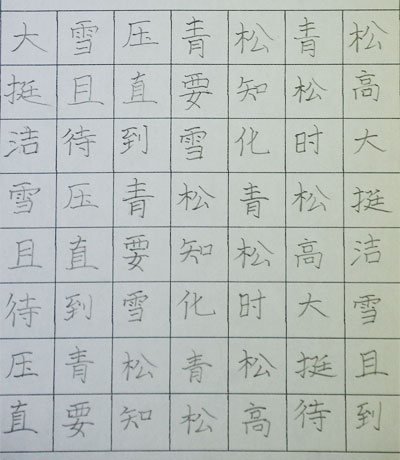 大雪压青松青松
挺且直要知松高
洁待到雪化时大
雪压青松青松挺
且直要知松高洁
待到雪化时大雪
压青松青松挺且
直要知松高待到